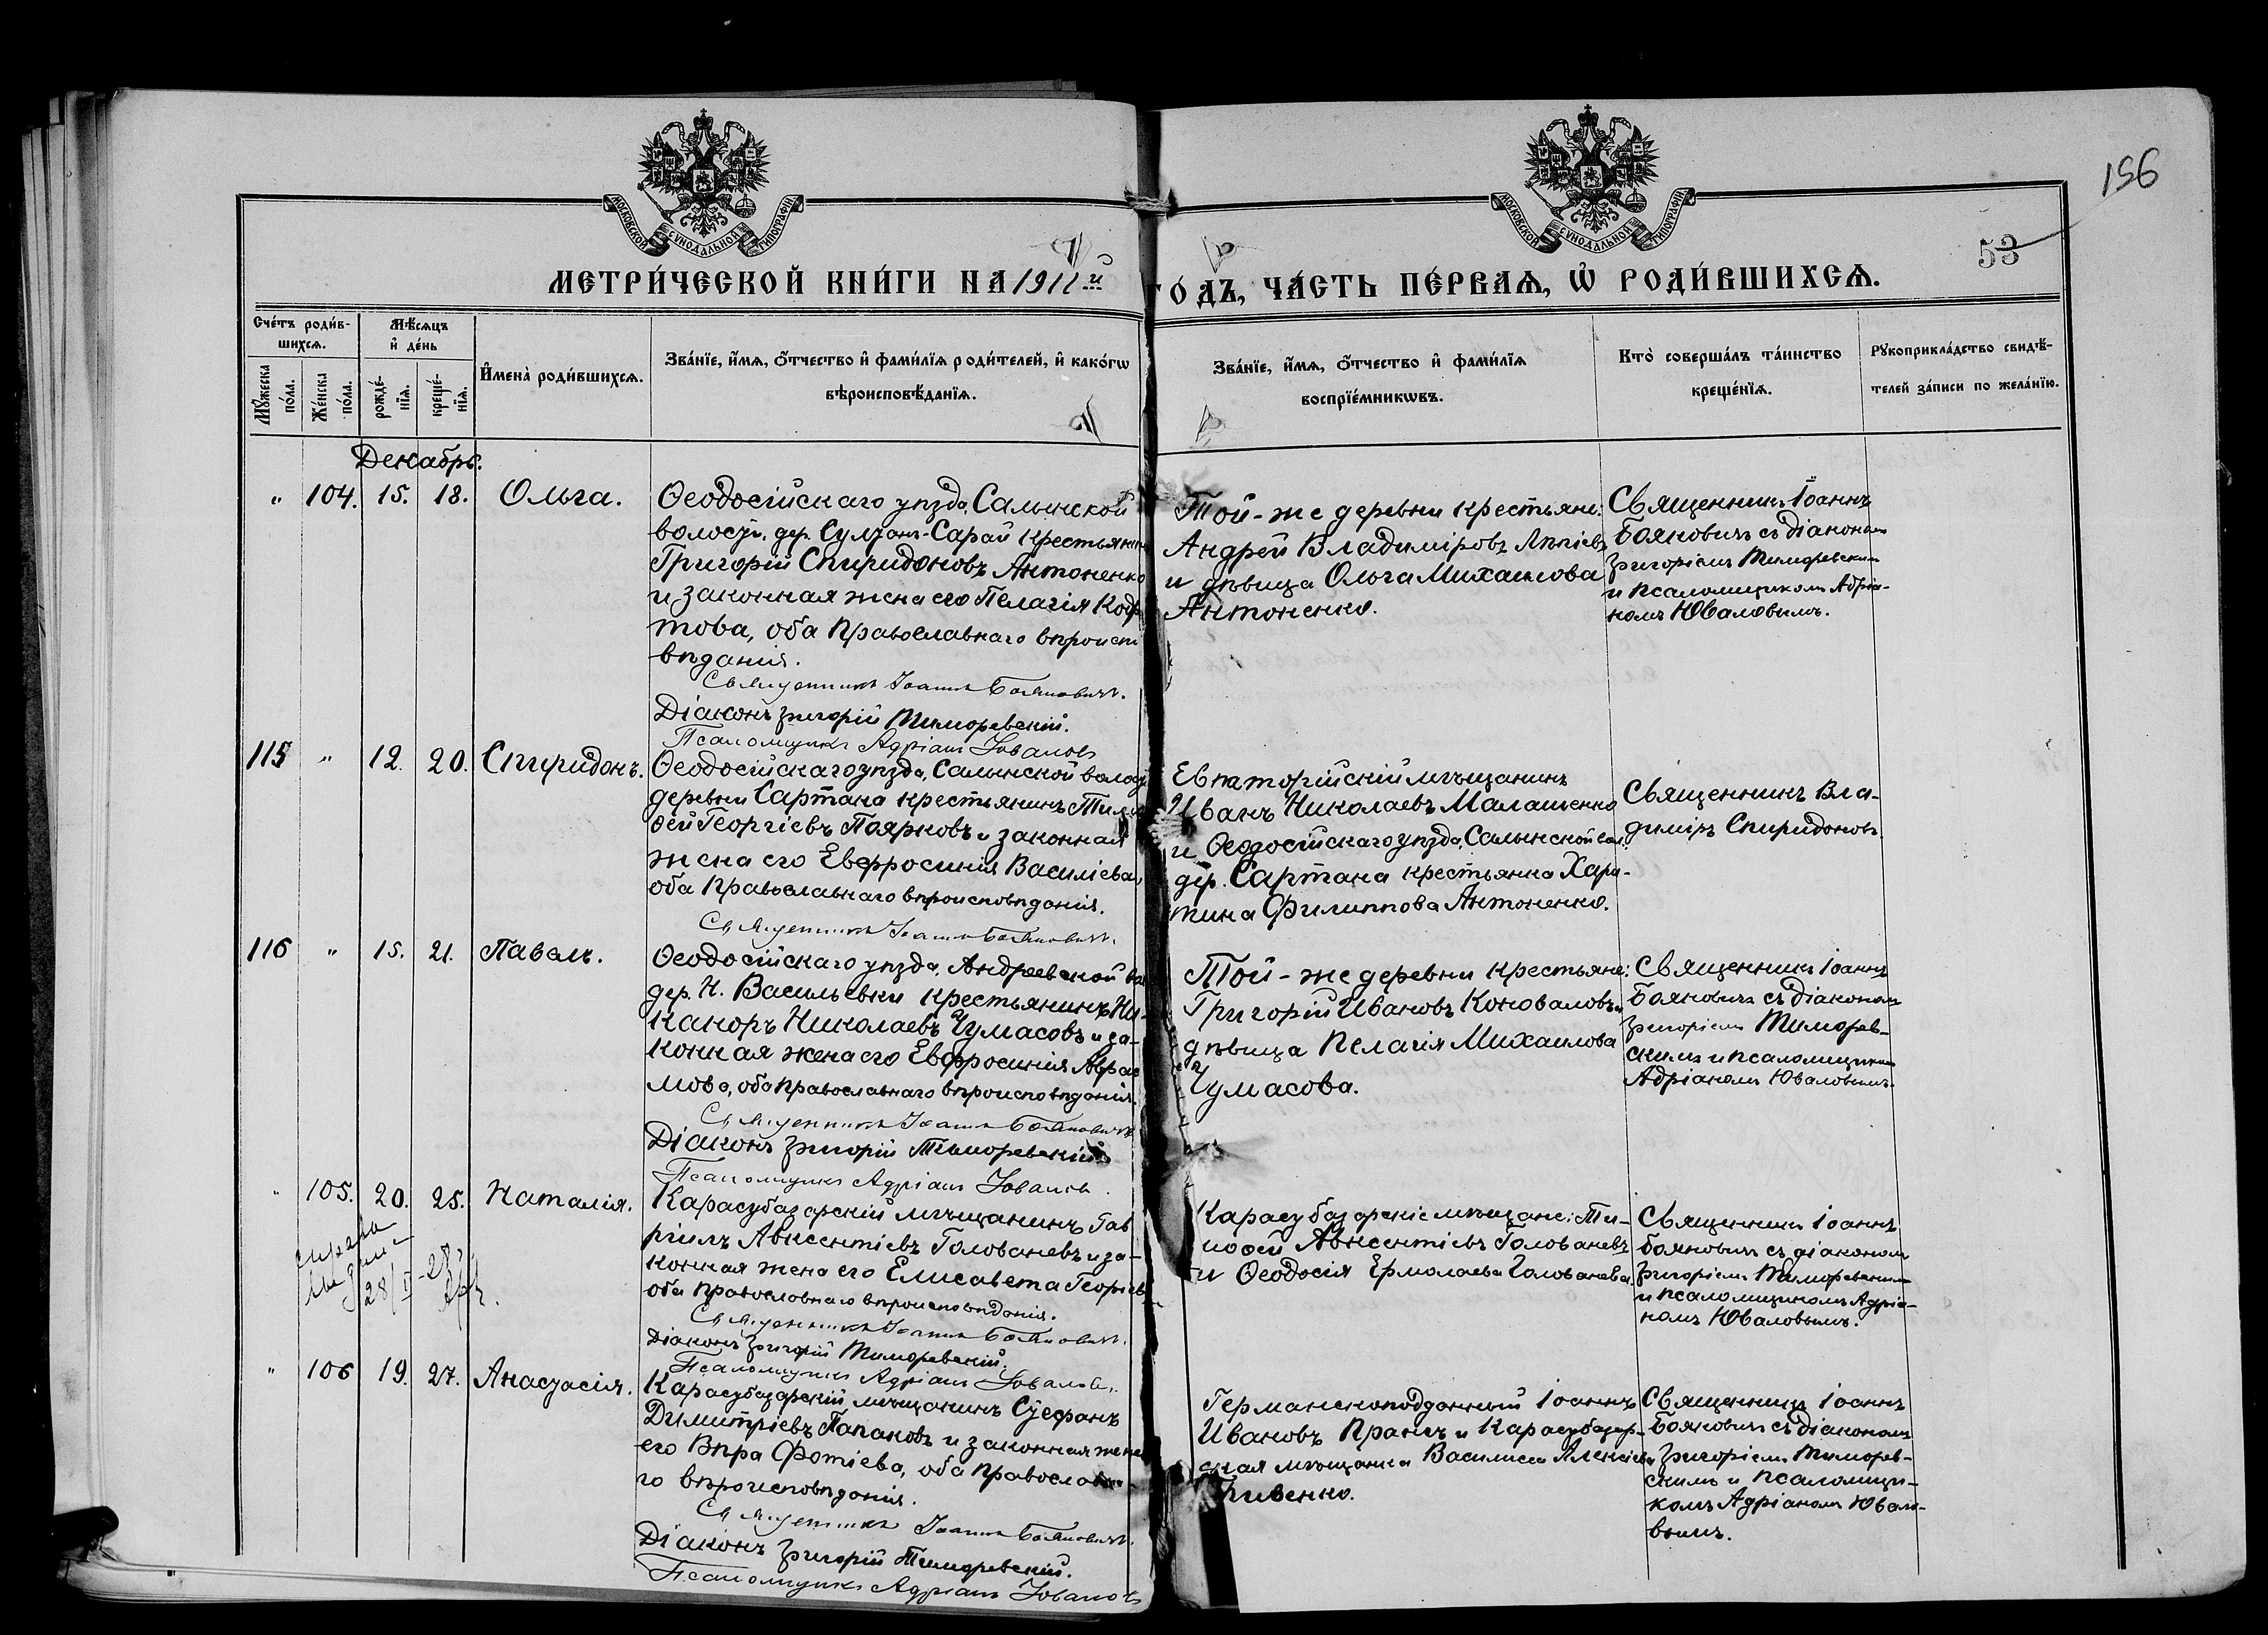 156
53
МОСКОВСКОЙ СѴНОДАЛЬНОЙ ТИПОГРАФІИ
МОСКОВСКОЙ СѴНОДАЛЬНОЙ ТИПОГРАФІИ
МЕТРИ́ЧЕСКОЙ КНИ́ГИ НА 1911й
ГО́ДЪ, ЧА́СТЬ ПЕ́РВАѦ, Ѡ҆ РОДИ́ВШИХСѦ.
Сче́тъ роди́в-
шихсѧ.
Мꙋ́жеска по́ла.
Же́нска по́ла.
Мѣ́сѧцъ
и҆ де́нь
рожде́-нїѧ.
креще́-нїѧ.
И҆мена̀ роди́вшихсѧ.
Зва́нїе, и҆́мѧ, ѻ҆́тчество и҆ фами́лїѧ роди́телей, и҆ како́гѡ
вѣроисповѣ́данїѧ.
Зва́нїе, и҆́мѧ, ѻ҆́тчество и҆ фами́лїѧ
воспрїе́мникѡвъ.
Кто̀ соверша́лъ та́инство
креще́нїѧ.
Рꙋкоприкла́дство свидѣ́-
телей за́писи по жела́нїю.
Декабрь.
" 104. 15. 18. Ольга.
Ѳеодосійскаго уѣзда, Салынской
волости, дер. Султанъ-Сарай крестьянинъ
Григорій Спиридоновъ Антоненко
и законная жена его Пелагія Кодра
това, оба православнаго вѣроиспо
вѣданія.
Священникъ Іоаннъ Бояновичъ.
Діаконъ Григорій Тиморевскій.
Псаломщикъ Адріанъ Юваловъ
Той-же деревни крестьяне:
Андрей Владиміровъ
и дѣвица Ольга Михаилова
Антоненко.
Священникъ Іоаннъ
Бояновичъ съ діакономъ
Григоріемъ Тиморевскимъ
и псаломщикомъ Адріа-
номъ Юваловымъ.
115 " 12. 20. Спиридонъ.
Ѳеодосійскаго уѣзда, Салынской волос
деревни Сартана крестьянинъ Тимо
ѳей Георгіевъ Поярковъ и законная
жена его Евфросинія Василіева,
оба православнаго вѣроисповѣданія.
Священникъ Іоаннъ Бояновичъ.
Евпаторійскій мѣщанинъ
Иванъ Николаевъ Малашенко
и Ѳеодосійскаго уѣзда, Салынской вол.
дер. Сартана крестьянка Хари-
тина Филиппова Антоненко.
Священникъ Вла-
диміръ Спиридоновъ.
116 " 15. 21. Павелъ.
Ѳеодосійскаго уѣзда, Андреевской во
дер. Н. Васильевки крестьянинъ Ни-
каноръ Николаевъ Чумасовъ и за-
конная жена его Евфросинія Абра
мова, оба православнаго вѣроисповѣданія.
Священникъ Іоаннъ Бояновичъ
Діаконъ Григорій Тиморевскій
Псаломщикъ Адріанъ Юваловъ.
Той-же деревни крестьяне:
Григорій Ивановъ Коноваловъ и
дѣвица Пелагія Михаилова
Чумасова.
Священникъ Іоаннъ
Бояновичъ съ діакономъ
Григоріемъ Тиморев-
скимъ и псаломщикомъ
Адріаномъ Юваловымъ.
" 105. 20. 25. Наталія.
Карасубазарскій мѣщанинъ Гав
ріилъ Авксентіевъ Голованевъ и за-
конная жена его Елисавета Георгіев
оба православнаго вѣроисповѣданія.
Священникъ Іоаннъ Бояновичъ.
Діаконъ Григорій Тиморевскій.
Псаломщикъ Адріанъ Юваловъ.
Карасубазарскіе мѣщане: Ти-
моѳей Авксентіевъ Голованевъ
и Ѳеодосія Ермолаева Голованева.
Священникъ Іоаннъ
Бояновичъ съ діакономъ
Григоріемъ Тиморевскимъ
и псаломщикомъ Адріа-
номъ Юваловымъ.
" 106 19. 27. Анастасія.
Карасубазарскій мѣщанинъ Стефанъ
Димитріевъ Папаковъ и законная жена
его Вѣра Фотіева, оба православна-
го вѣроисповѣданія.
Священникъ Іоаннъ Бояновичъ.
Діаконъ Григорій Тиморевскій.
Псаломщикъ Адріанъ Юваловъ
Германскоподданный Іоаннъ
Ивановъ Прангъ и Карасубазар-
ская мѣщанка Василиса Алексіева
Священникъ Іоаннъ
Бояновичъ съ діакономъ
Григоріемъ Тиморев-
скимъ и псаломщи-
комъ Адріаномъ Ювало-
вымъ.